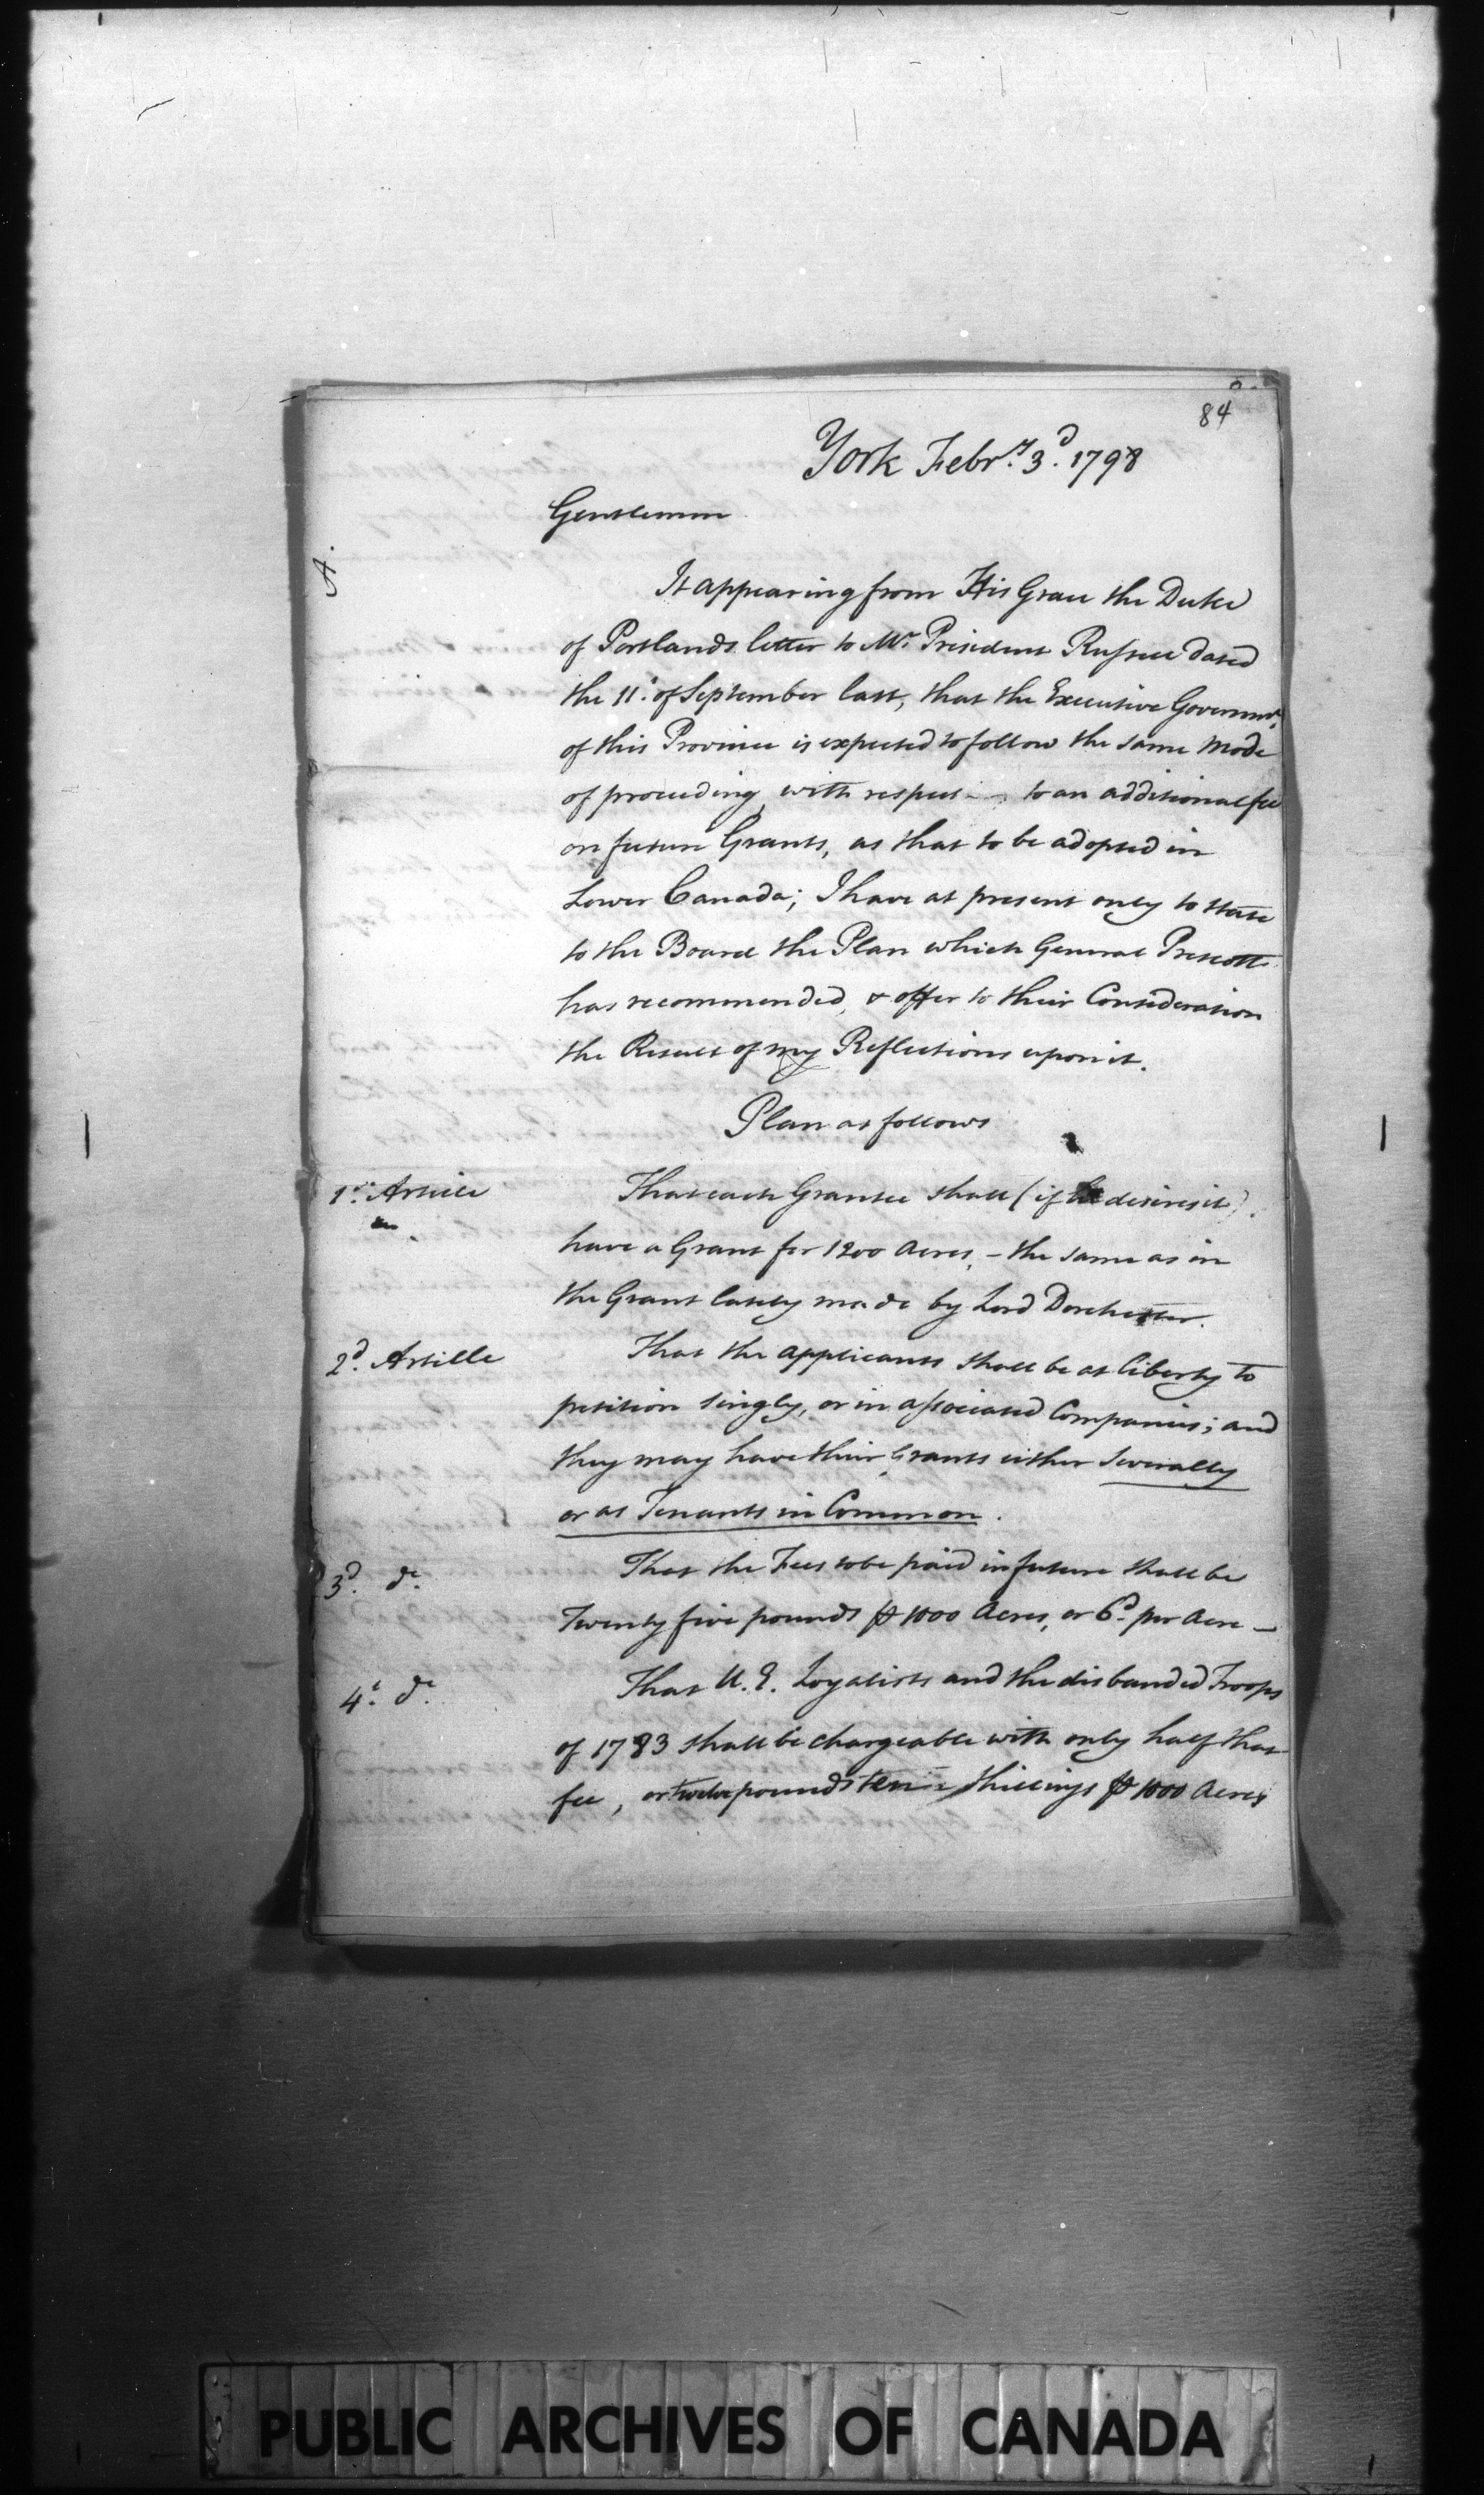 84
York Febry. 3d. 1798
Gentlemen
A.
It appearing from His Grace the Duke
of Portlands letter to Mr. President Russell dated
the 11t. of September last, that the Executive Governmt.
of this Province is expected to follow the same mode
of proceeding with respect - to an additional fee
on future Grants, as that to be adopted in
Lower Canada; I have at present only to state
to the Board the Plan which General Prescott
has recommended, & offer to their Consideration
the Result of my Reflections upon it.
Plan as follows
1st. Article
That each Grantee shall (if he desires it)
have a Grant for 1200 Acres, - the same as in
the Grant lately made by Lord Dorchester.
2d. Article
That the applicants shall be at liberty to
petition singly, or in associated Companies; and
they may have their Grants either severally
or as Tenants in Common.
3d. do.
That the Fees to be paid in future shall be
Twenty five pounds ⅌ 1000 Acres, or 6d. per Acre -
4t. do.
That U.E. Loyalists and the disbanded Troops
of 1783 shall be chargeable with only half that
fee, or twelve pounds ten shillings ⅌ 1000 Acres
PUBLIC ARCHIVES OF CANADA